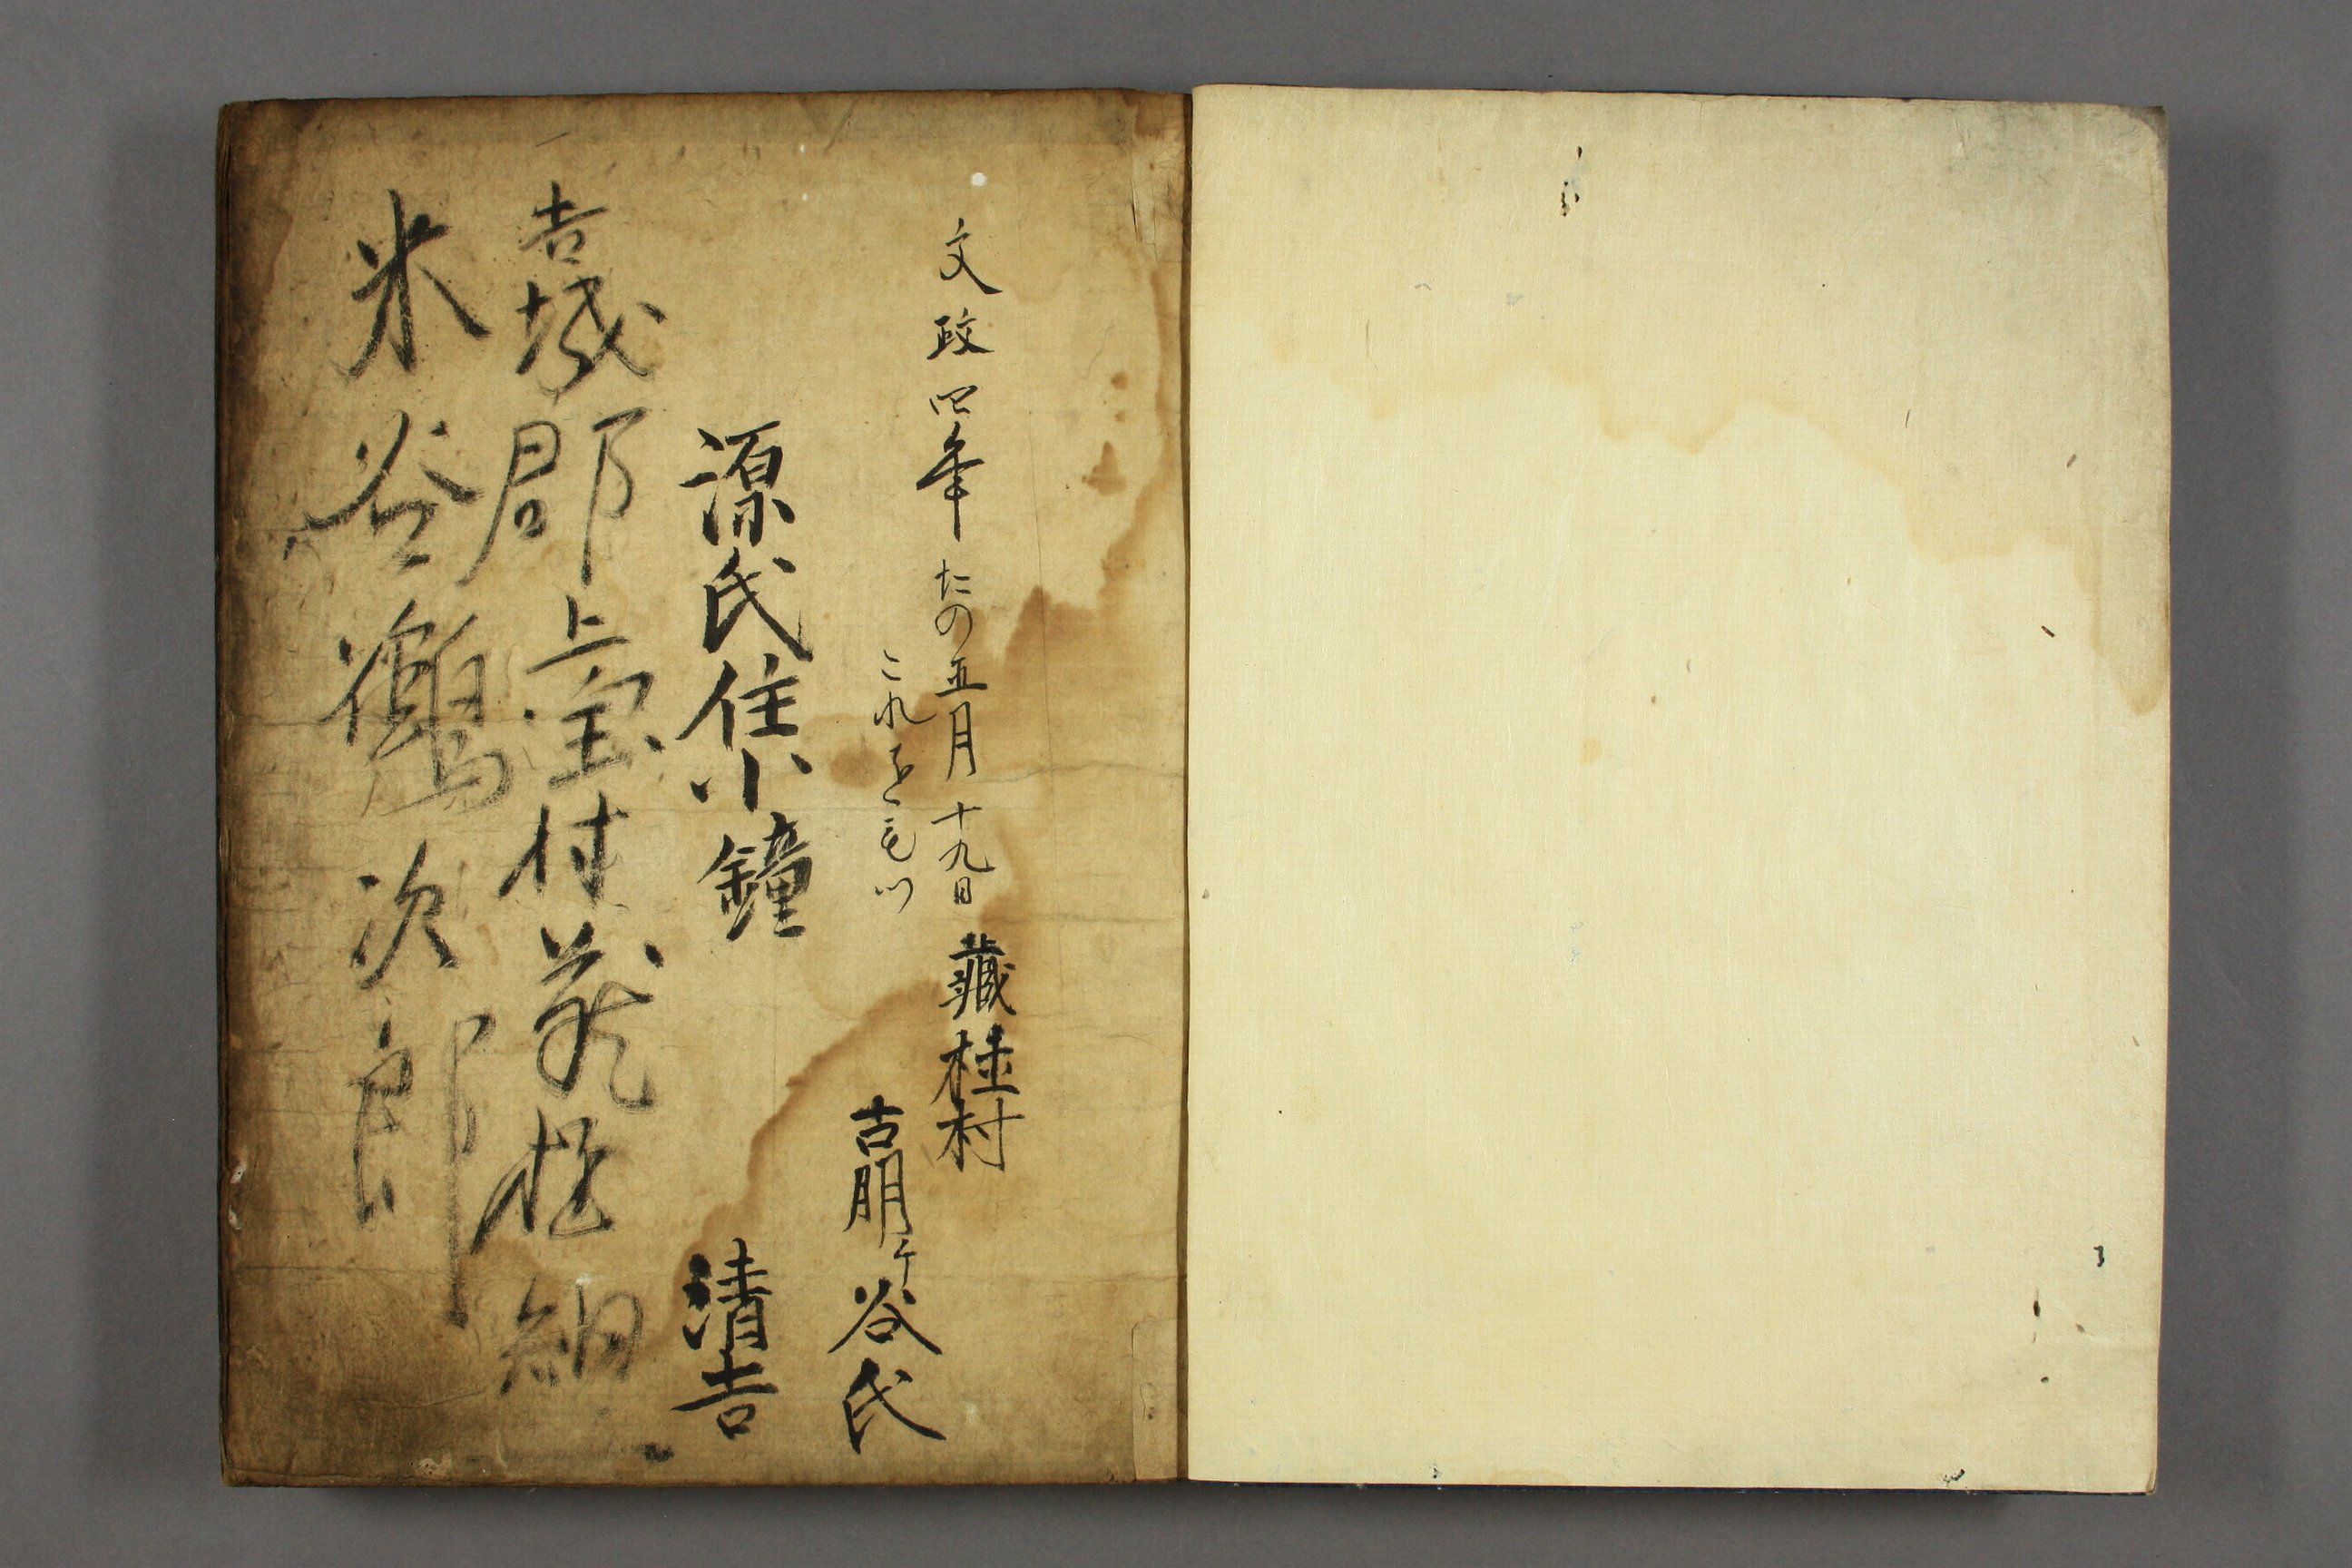 文政四年たの五月十九日 藏桂村
これを毛川
古明ケ谷氏
源氏住小鐘
清吉
吉城郡上宝村蔵柱組
米谷鶴次郎